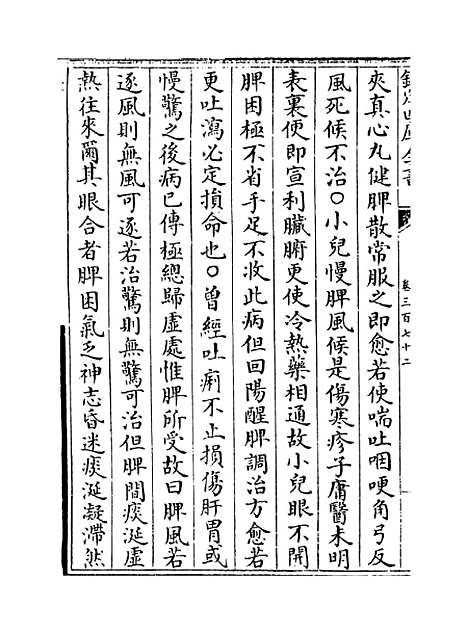 欽定四庫全書
卷三百七十二
夾真心丸健脾散常服之即愈若使喘吐咽哽角弓反
風死候不治○小兒慢脾風候是傷寒疹子庸醫未明
表裏便即宣利臟腑更使冷熱藥相通故小兒眼不開
脾困極不省手足不收此病但回陽醒脾調治方愈若
更吐瀉必定損命也○曾經吐痢不止損傷肝胃或
慢驚之後病已傳極總歸虛處惟脾所受故曰脾風若
逐風則無風可逐若治驚則無驚可治但脾間痰涎虛
熱往來爾其眼合者脾困氣乏神志昏迷痰涎凝滯然